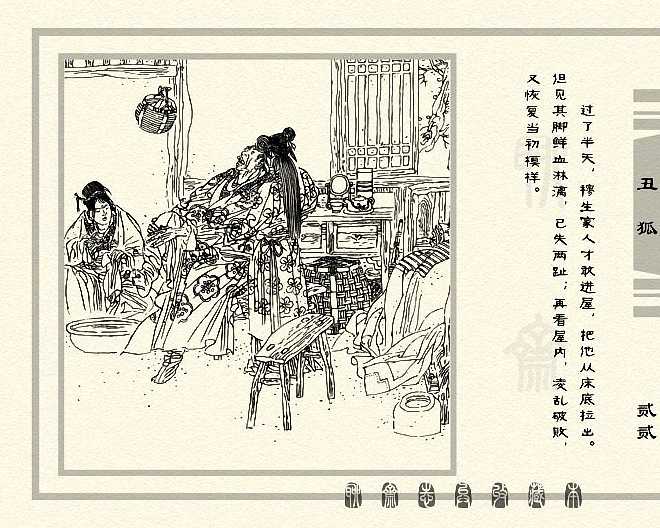 过了半天，穆生家人才敢进屋，把他从床底拉出。
但见其脚鲜血淋漓，已失两趾；再看屋内，凌乱破败，
又恢复当初模样。
丑狐
贰贰
聊斋志异收藏本